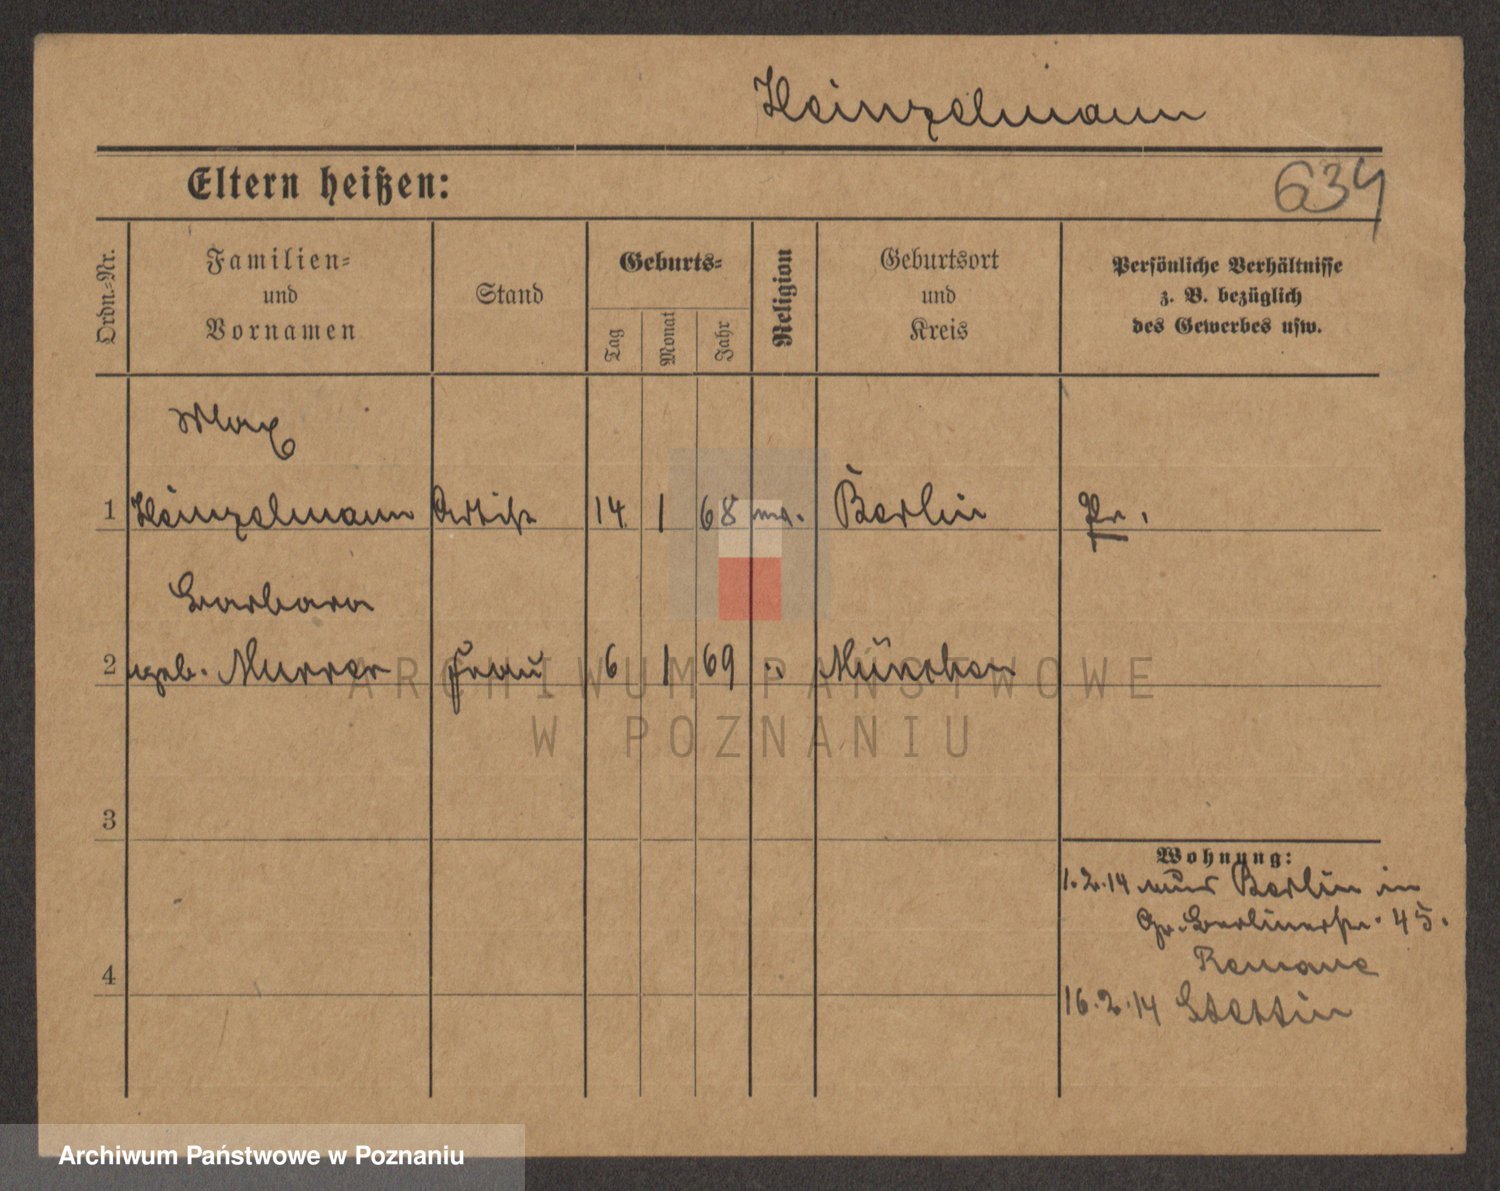 Heinzelmann
Eltern heißen:
634
Ordn.-Nr.
Familien-
und
Vornamen
Stand
Geburts-
Tag
Monat
Jahr
Religion
Geburtsort
und
Kreis
Persönliche Verhältnisse
z. B. bezüglich
des Gewerbes usw.
Max
1 Heinzelmann Artist 14 1 68 Berlin Pr.
Barbara
2 geb. Murrer Frau 6 1 69 " München
3
Wohnung:
1.2.14 aus Berlin in
Gr. Berlinerstr. 45.
4
16.2.14 Stettin
ARCHIWUM PAŃSTWOWE
W POZNANIU
Archiwum Państwowe w Poznaniu